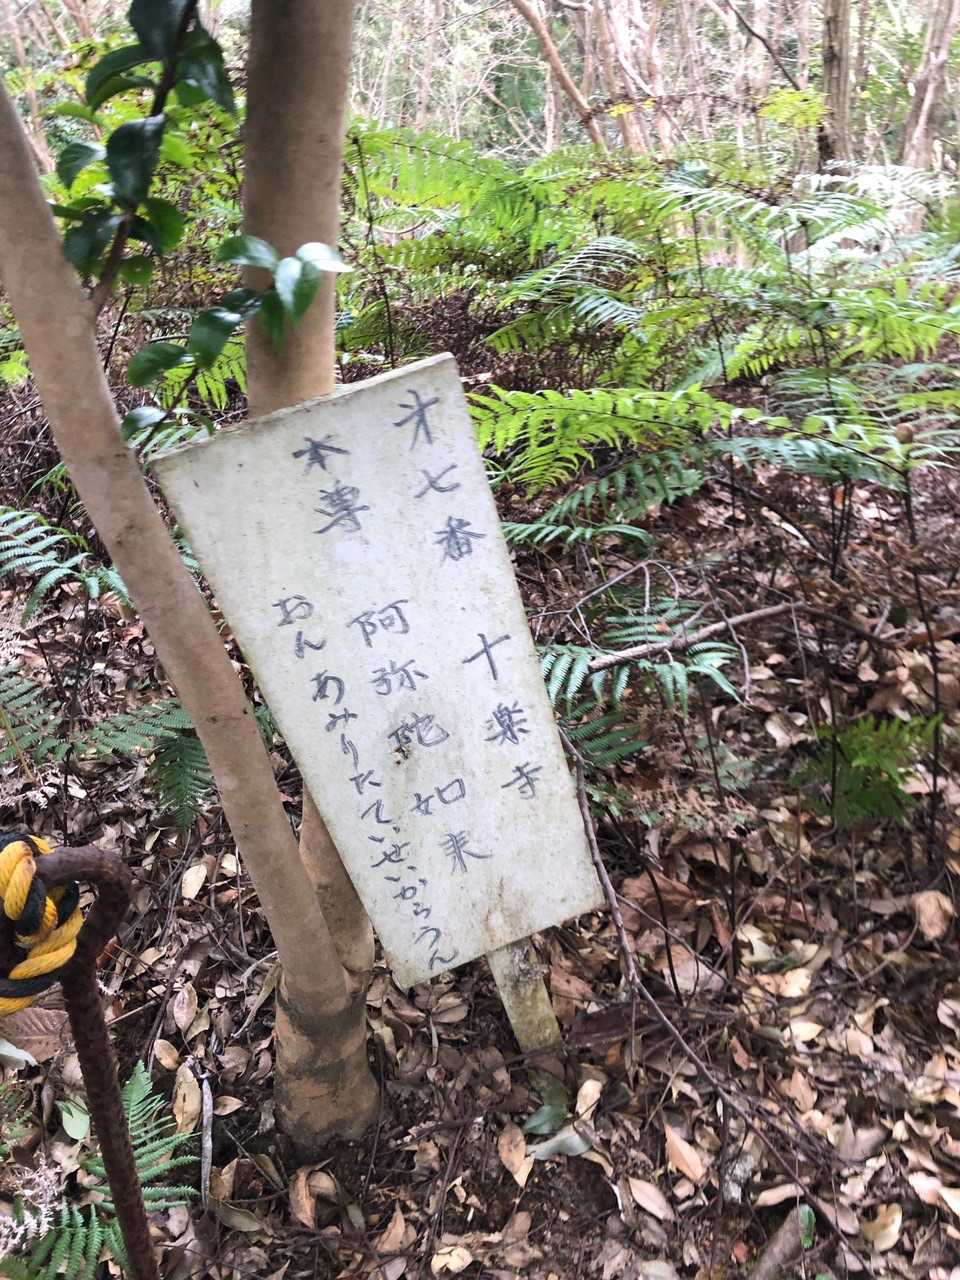 第七番 十楽寺
本尊 阿弥陀如来
おん あみりたていせいからうん